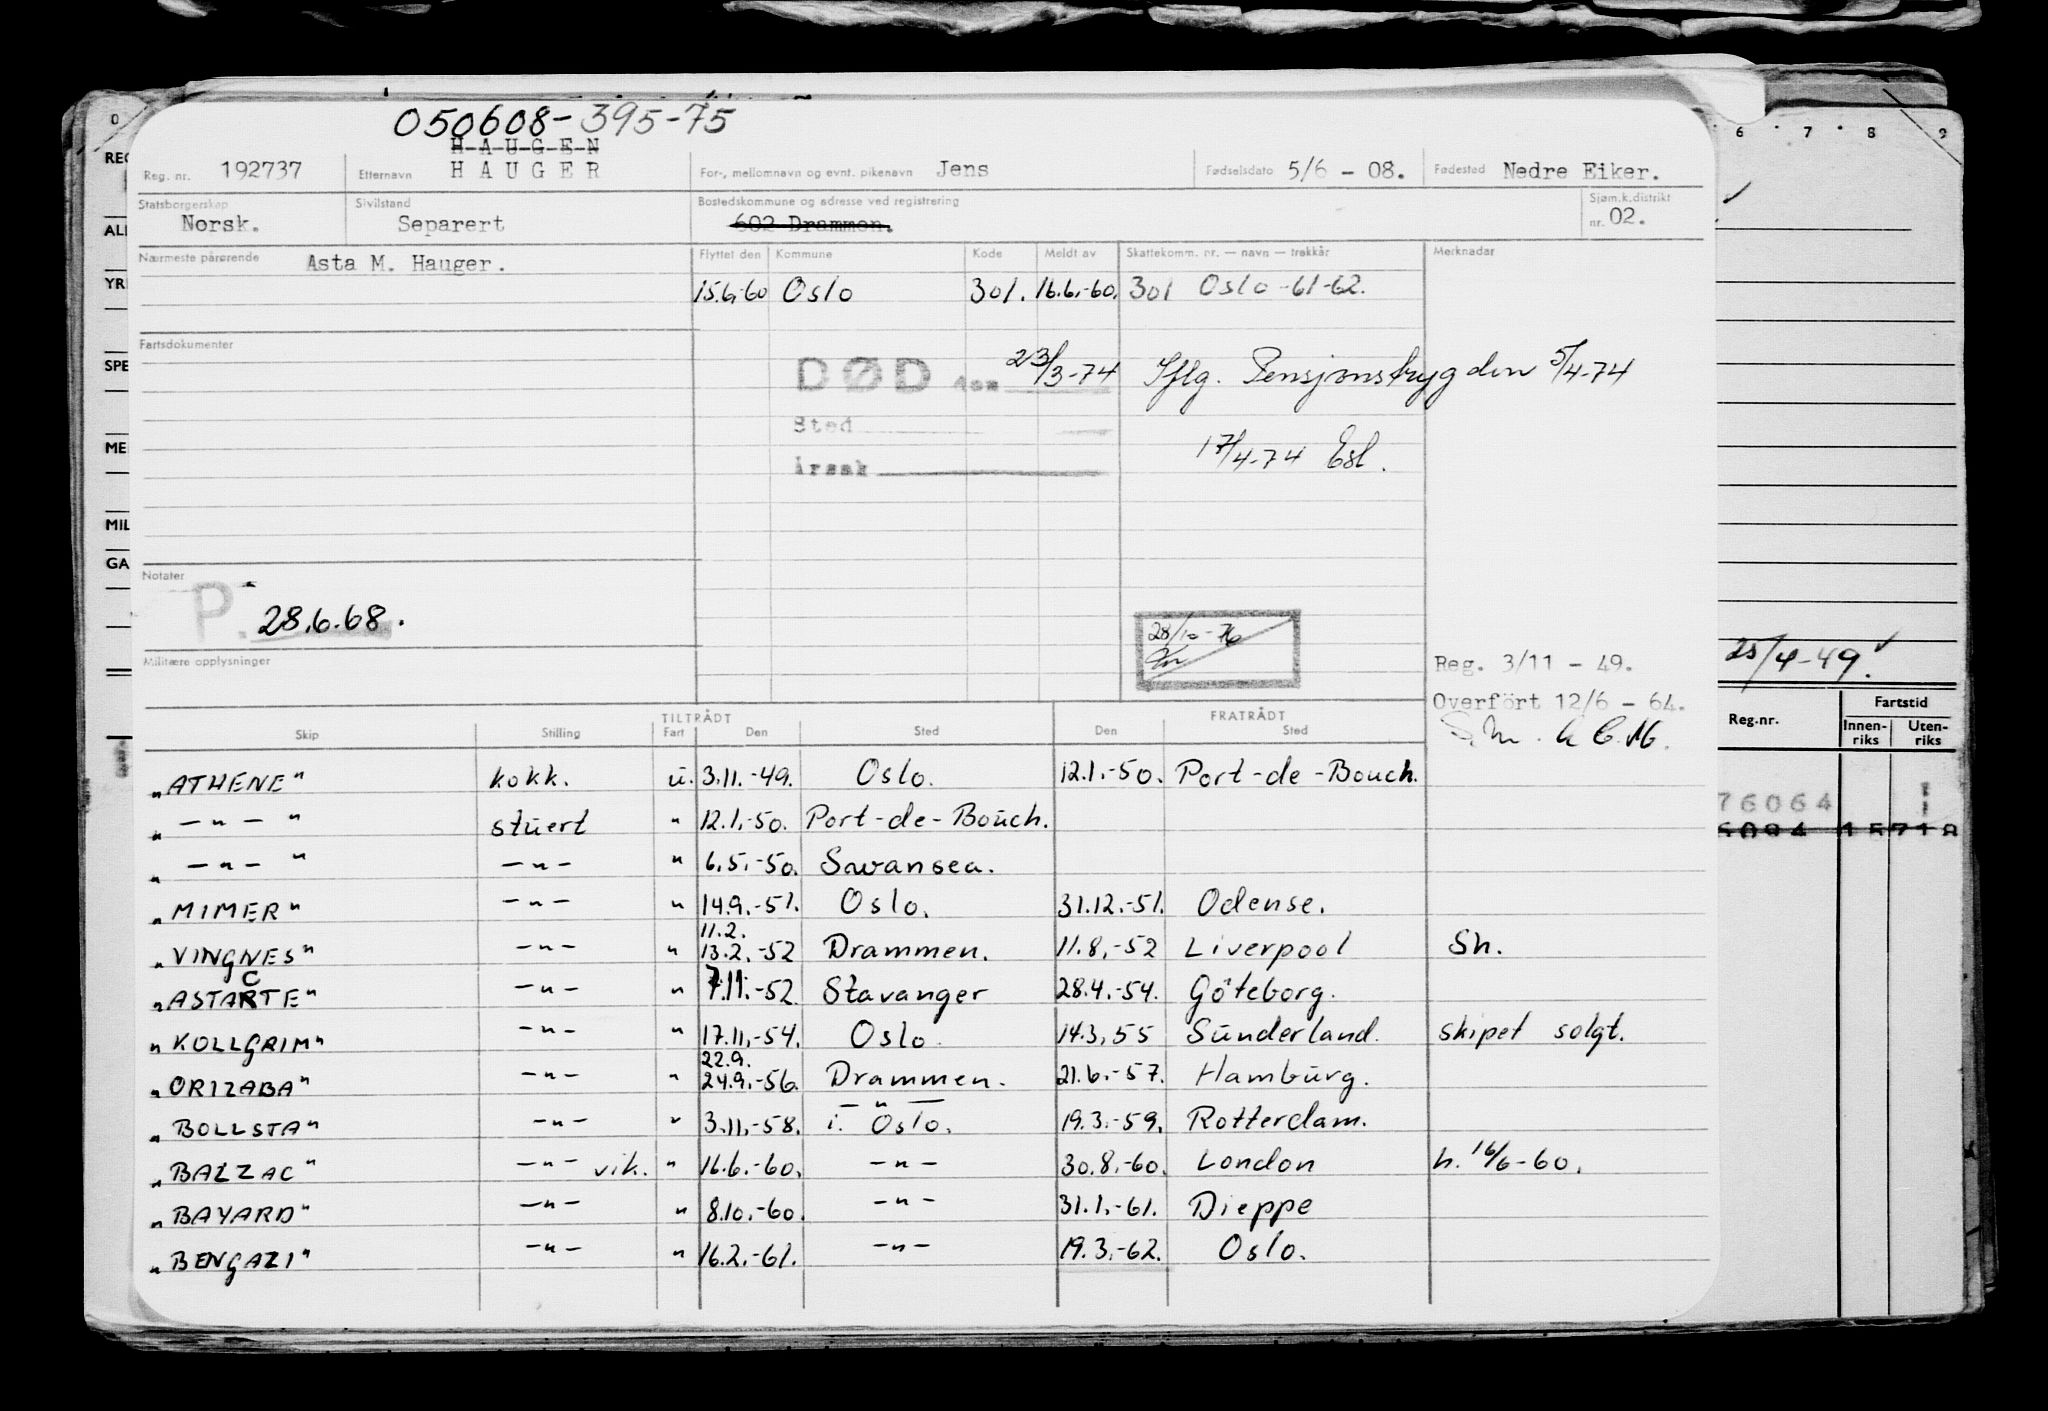 050608-395-75
HAUGEN
Reg. nr. 192737 Etternavn HAUGER For-, mellomnavn og evnt. pikenavn Jens Fødselsdato 5/6 - 08. Fødested Nedre Eiker.
Statsborgerskap Norsk. Sivilstand Separert Bostedskommune og adresse ved registrering 602 Drammen. Sjøm.k.distrikt nr. 02.
Nærmeste pårørende Asta M. Hauger. Flyttet den Kommune Kode Meldt av Skattekomm. nr. — navn — trekkår Merknader
15.6.-60 Oslo 301. 16.6.-60. 301 Oslo -61-62.
Fartsdokumenter
DØD den 23/3-74 Iflg. Pensjonstrygden 5/4-74
Sted
17/4-74 Esl.
Årsak
Notater
P. 28.6.68.
28/10-76
Militære opplysninger
Reg. 3/11 - 49.
Overført 12/6 - 64.
TILTRÅDT FRATRÅDT
Skip Stilling Fart Den Sted Den Sted
"ATHENE" kokk. u. 3.11.-49. Oslo. 12.1.-50. Port-de-Bouch.
" -"- " stuert " 12.1.-50. Port-de-Bouch.
" -"- " -"- " 6.5.-50. Swansea.
"MIMER" -"- " 14.9.-51. Oslo. 31.12.-51. Odense.
11.2.
"VINGNES" -"- " 13.2.-52 Drammen. 11.8.-52 Liverpool Sh.
C
"ASTARTE" -"- " 7.11.-52 Stavanger 28.4.-54. Göteborg.
"KOLLGRIM" -"- " 17.11.-54. Oslo. 14.3.55 Sunderland. skipet solgt.
22.9.
"ORIZABA" -"- " 24.9.-56. Drammen. 21.6.-57. Hamburg.
- " -
"BOLLSTA" -"- " 3.11.-58. i. Oslo. 19.3.-59. Rotterdam.
"BALZAC" -"- vik. " 16.6.-60. -"- 30.8.-60. London h. 16/6-60.
"BAYARD" -"- " 8.10.-60. -"- 31.1.-61. Dieppe
"BENGAZI" -"- " 16.2.-61. -"- 19.3.-62. Oslo.
0
REG
ALI
YR
SPE
ME
MIL
GA
6 7 8 9
25/4-49.
Reg.nr. Fartstid
Innen-riks Uten-riks
76064